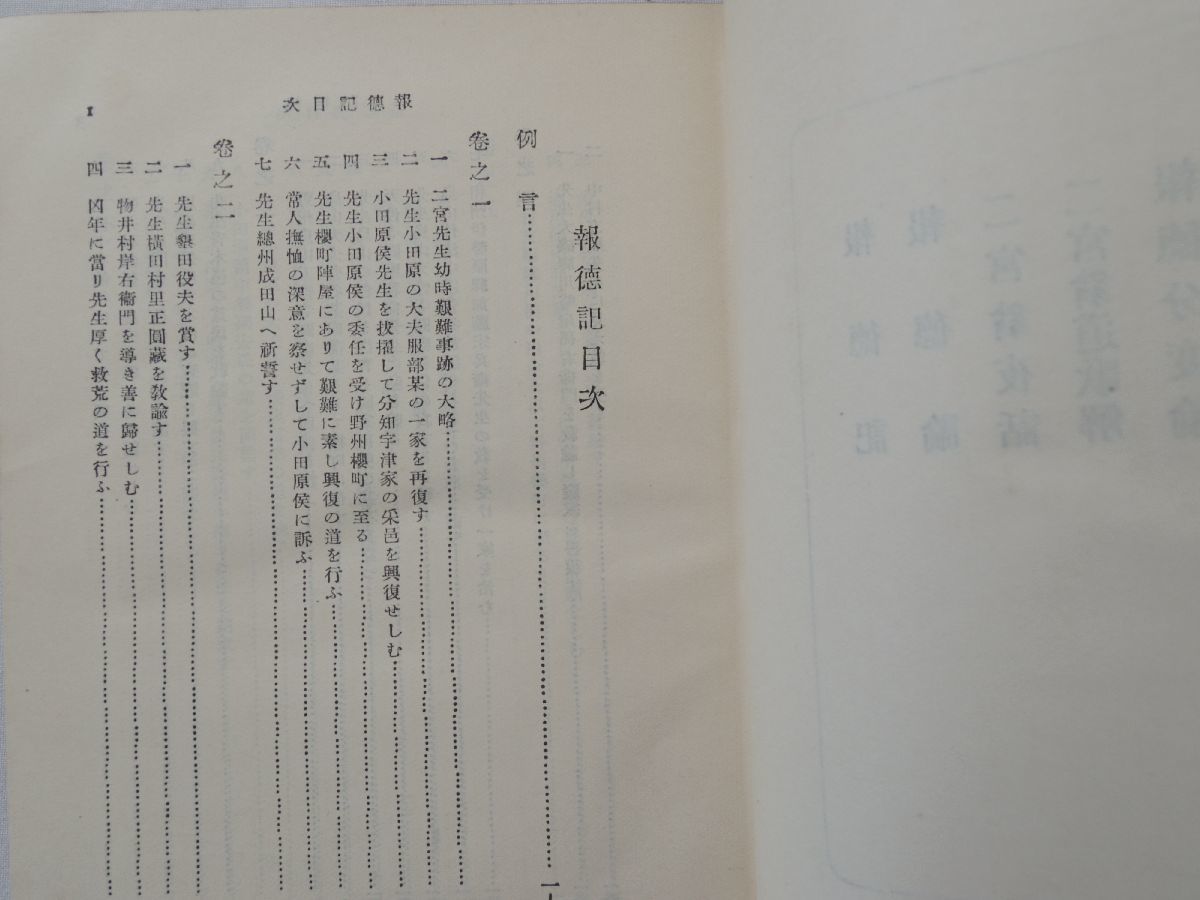 報德記目次
例言……………………………………一
卷之一
一 二宮先生幼時艱難事跡の大略……………………
二 先生小田原の大夫服部某の一家を再復す……………………
三 小田原侯先生を拔擢して分知宇津家の采邑を興復せしむ……………………
四 先生小田原侯の委任を受け野州櫻町に至る……………………
五 先生櫻町陣屋にありて艱難に素し興復の道を行ふ……………………
六 常人撫恤の深意を察せずして小田原侯に訴ふ……………………
七 先生總州成田山へ祈誓す……………………
卷之二
一 先生墾田役夫を賞す……………………
二 先生橫田村里正圓藏を敎諭す……………………
三 物井村岸右衞門を導き善に歸せしむ……………………
四 凶年に當り先生厚く救荒の道を行ふ……………………
報德記目次
1